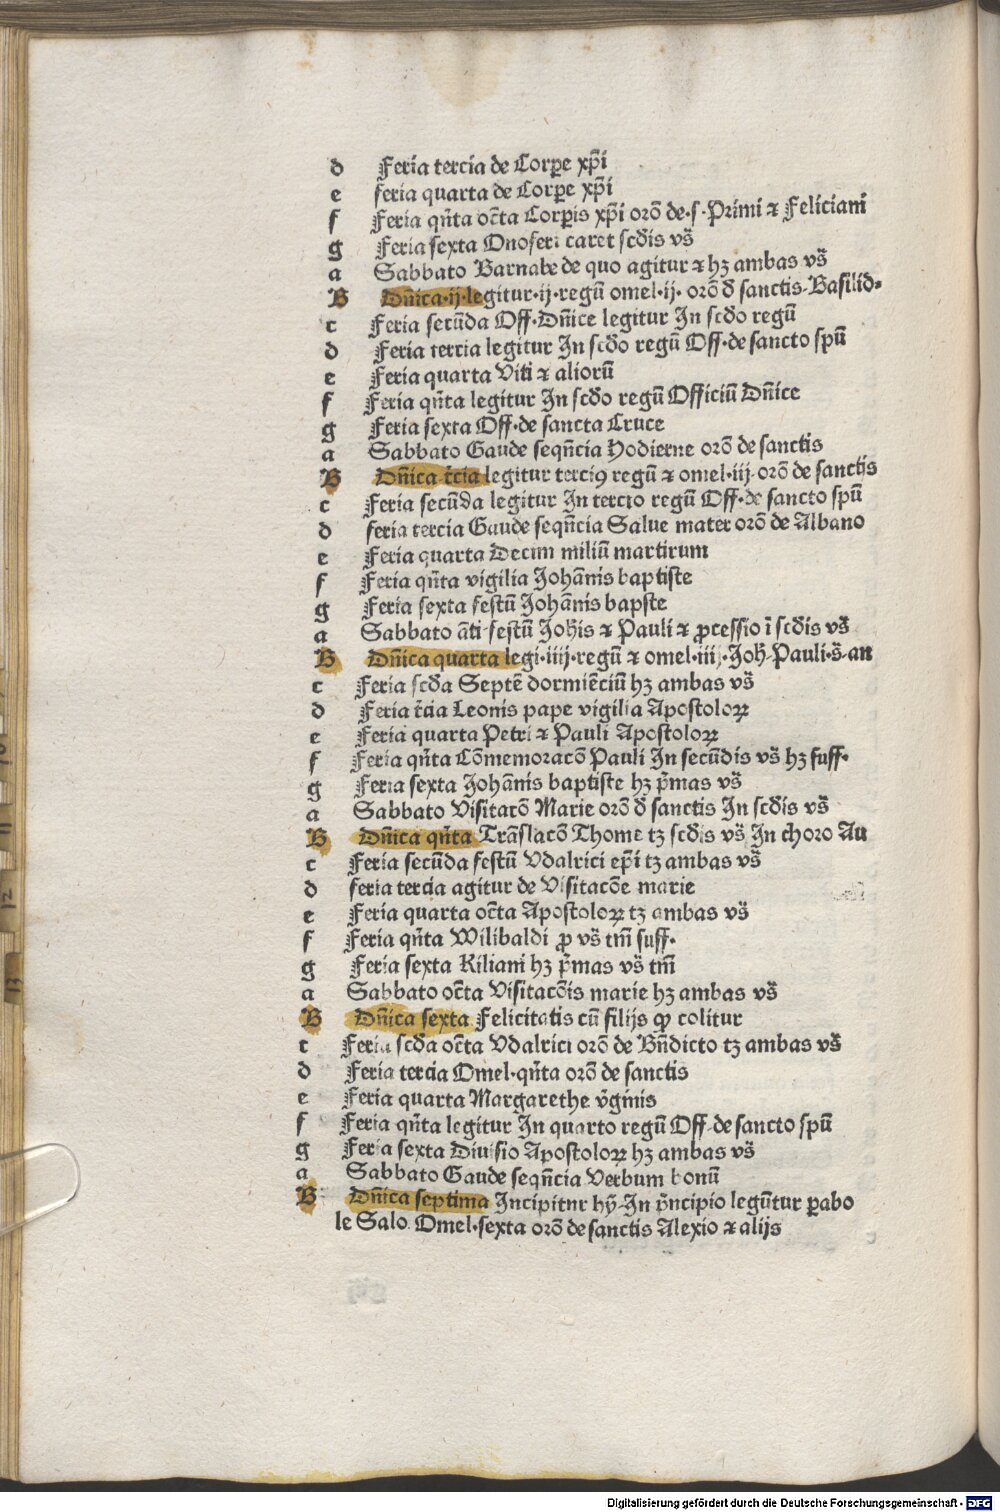 d Feria tercia de Corꝑe xp̄i
e feria quarta de Corꝑe xp̄i
f Feria qn̄ta oct̄a Corꝑis xp̄i orō de·s·Primi ⁊ Feliciani
g Feria sexta Onoferi caret scd̄is vs̄
a Sabbato Barnabe de quo agitur ⁊ hꝫ ambas vs̄
B Dn̄ica·ij·legitur·ij·regū omel·ij· orō d̄ sanctis·Basilid·
c Feria secūda Off·Dn̄ice legitur In scd̄o regū
d Feria tercia legitur In scd̄o regū Off·de sancto spū
e Feria quarta Viti ⁊ aliorū
f Feria qn̄ta legitur In scd̄o regū Officiū Dn̄ice
g Feria sexta Off·de sancta Cruce
a Sabbato Gaude seqn̄cia Hodierne orō de sanctis
B Dn̄ica t̄cia legitur terciꝰ regū ⁊ omel·iij·orō de sanctis
c Feria secūda legitur In tercio regū Off·de sancto spū
d feria tercia Gaude seqn̄cia Salue mater orō de Albano
e Feria quarta Decim miliū martirum
f Feria qn̄ta vigilia Johānis baptiste
g Feria sexta festū Johānis bapste
a Sabbato āti·festū Joh̄is ⁊ Pauli ⁊ ꝓcessio ī scd̄is vs̄
B Dn̄ica quarta legi·iiij·regū ⁊ omel·iiij·Joh·Pauli·s̄·an
c Feria scd̄a Septē dormiēciū hꝫ ambas vs̄
d Feria t̄cia Leonis pape vigilia Apostoloꝝ
e Feria quarta Petri ⁊ Pauli Apostoloꝝ
f Feria qn̄ta Cōmemoracō Pauli In secūdis vs̄ hꝫ suff·
g Feria sexta Johānis baptiste hꝫ p̄mas vs̄
a Sabbato Visitacō Marie orō d̄ sanctis In scd̄is vs̄
B Dn̄ica qn̄ta Trāslacō Thome tꝫ scd̄is vs̄ In choro Au
c Feria secūda festū Vdalrici ep̄i tꝫ ambas vs̄
d feria tercia agitur de Visitacōe marie
e Feria quarta oct̄a Apostoloꝝ tꝫ ambas vs̄
f Feria qn̄ta Wilibaldi ꝓ vs̄ tm̄ suff·
g Feria sexta Kiliani hꝫ p̄mas vs̄ tm̄
a Sabbato oct̄a Visitacōis marie hꝫ ambas vs̄
B Dn̄ica sexta Felicitatis cū filijs ꝙ colitur
c Feria scd̄a oct̄a Vdalrici orō de Bn̄dicto tꝫ ambas vs̄
d Feria tercia Omel·qn̄ta orō de sanctis
e Feria quarta Margarethe v̄ginis
f Feria qn̄ta legitur In quarto regū Off·de sancto spū
g Feria sexta Diuisio Apostoloꝝ hꝫ ambas vs̄
a Sabbato Gaude seqn̄cia Verbum bonū
B Dn̄ica septima Incipitur hȳ·In p̄ncipio legūtur ꝑabo
le Salo. Omel·sexta orō de sanctis Alexio ⁊ alijs
11
12
13
Digitalisierung gefördert durch die Deutsche Forschungsgemeinschaft - DFG